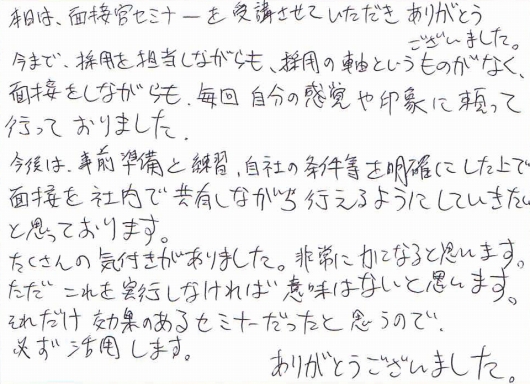 本日は、面接官セミナーを受講させていただきありがとう
ございました。
今まで、採用を担当しながらも、採用の軸というものがなく、
面接をしながらも、毎回自分の感覚や印象に頼って
行っておりました。
今後は、事前準備と練習、自社の条件等を明確にした上で
面接を社内で共有しながら行えるようにしていきたい
と思っております。
たくさんの気付きがありました。非常に力になると思います。
ただこれを実行しなければ意味はないと思います。
それだけ効果のあるセミナーだったと思うので、
必ず活用します。
ありがとうございました。